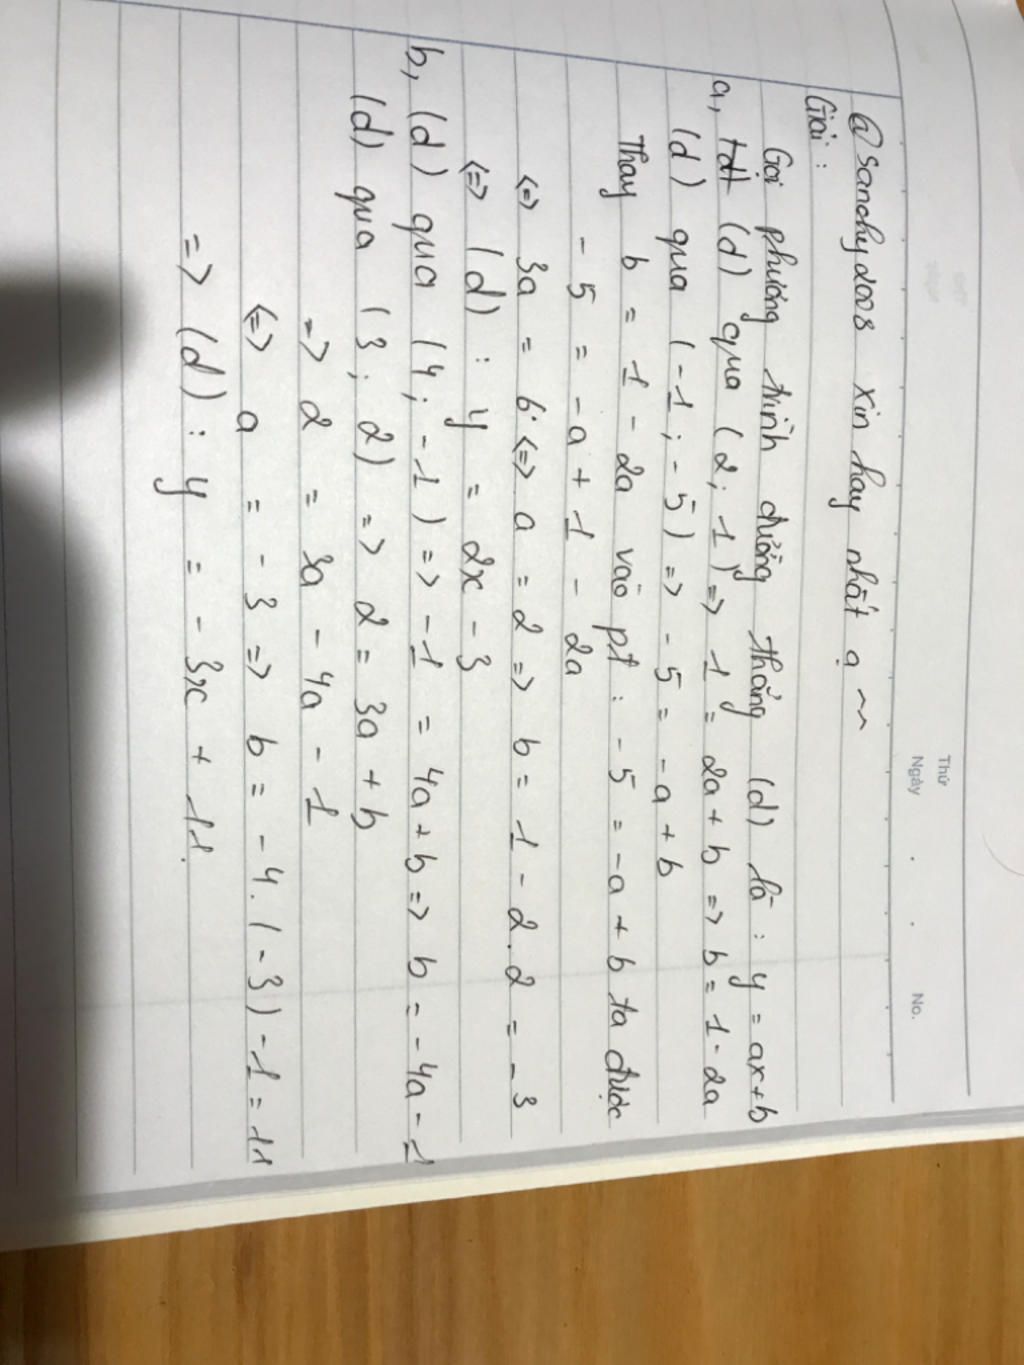 Thứ
Ngày . . No.
@Sanchy2008 xin hay nhất ạ ~
Giải :
Gọi phương trình đường thẳng (d) là : y = ax+b
a, (d) qua (2; 1) => 1 = 2a + b => b = 1 - 2a
(d) qua (-1; -5) => -5 = -a + b
Thay b = 1 - 2a vào pt : -5 = -a + b ta được
-5 = -a + 1 - 2a
<=> 3a = 6 <=> a = 2 => b = 1 - 2.2 = -3
<=> (d) : y = 2x - 3
b, (d) qua (4; -1) => -1 = 4a + b => b = -4a - 1
(d) qua (3; 2) => 2 = 3a + b
=> 2 = 3a - 4a - 1
<=> a = -3 => b = -4.(-3) - 1 = 11
=> (d) : y = -3x + 11.